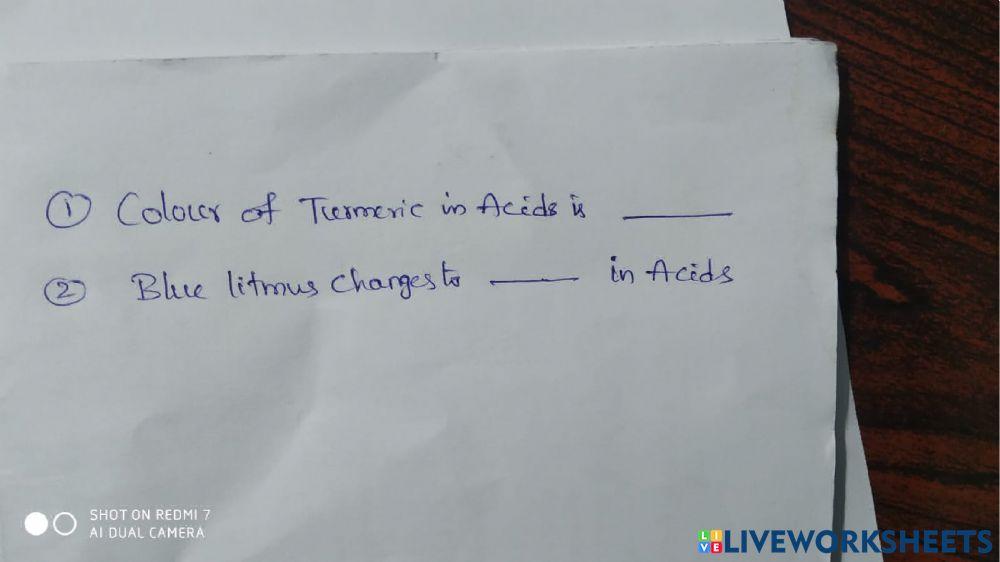 ① Colour of Turmeric in Acids is ______
② Blue litmus changes to ______ in Acids
SHOT ON REDMI 7
AI DUAL CAMERA
LIVEWORKSHEETS